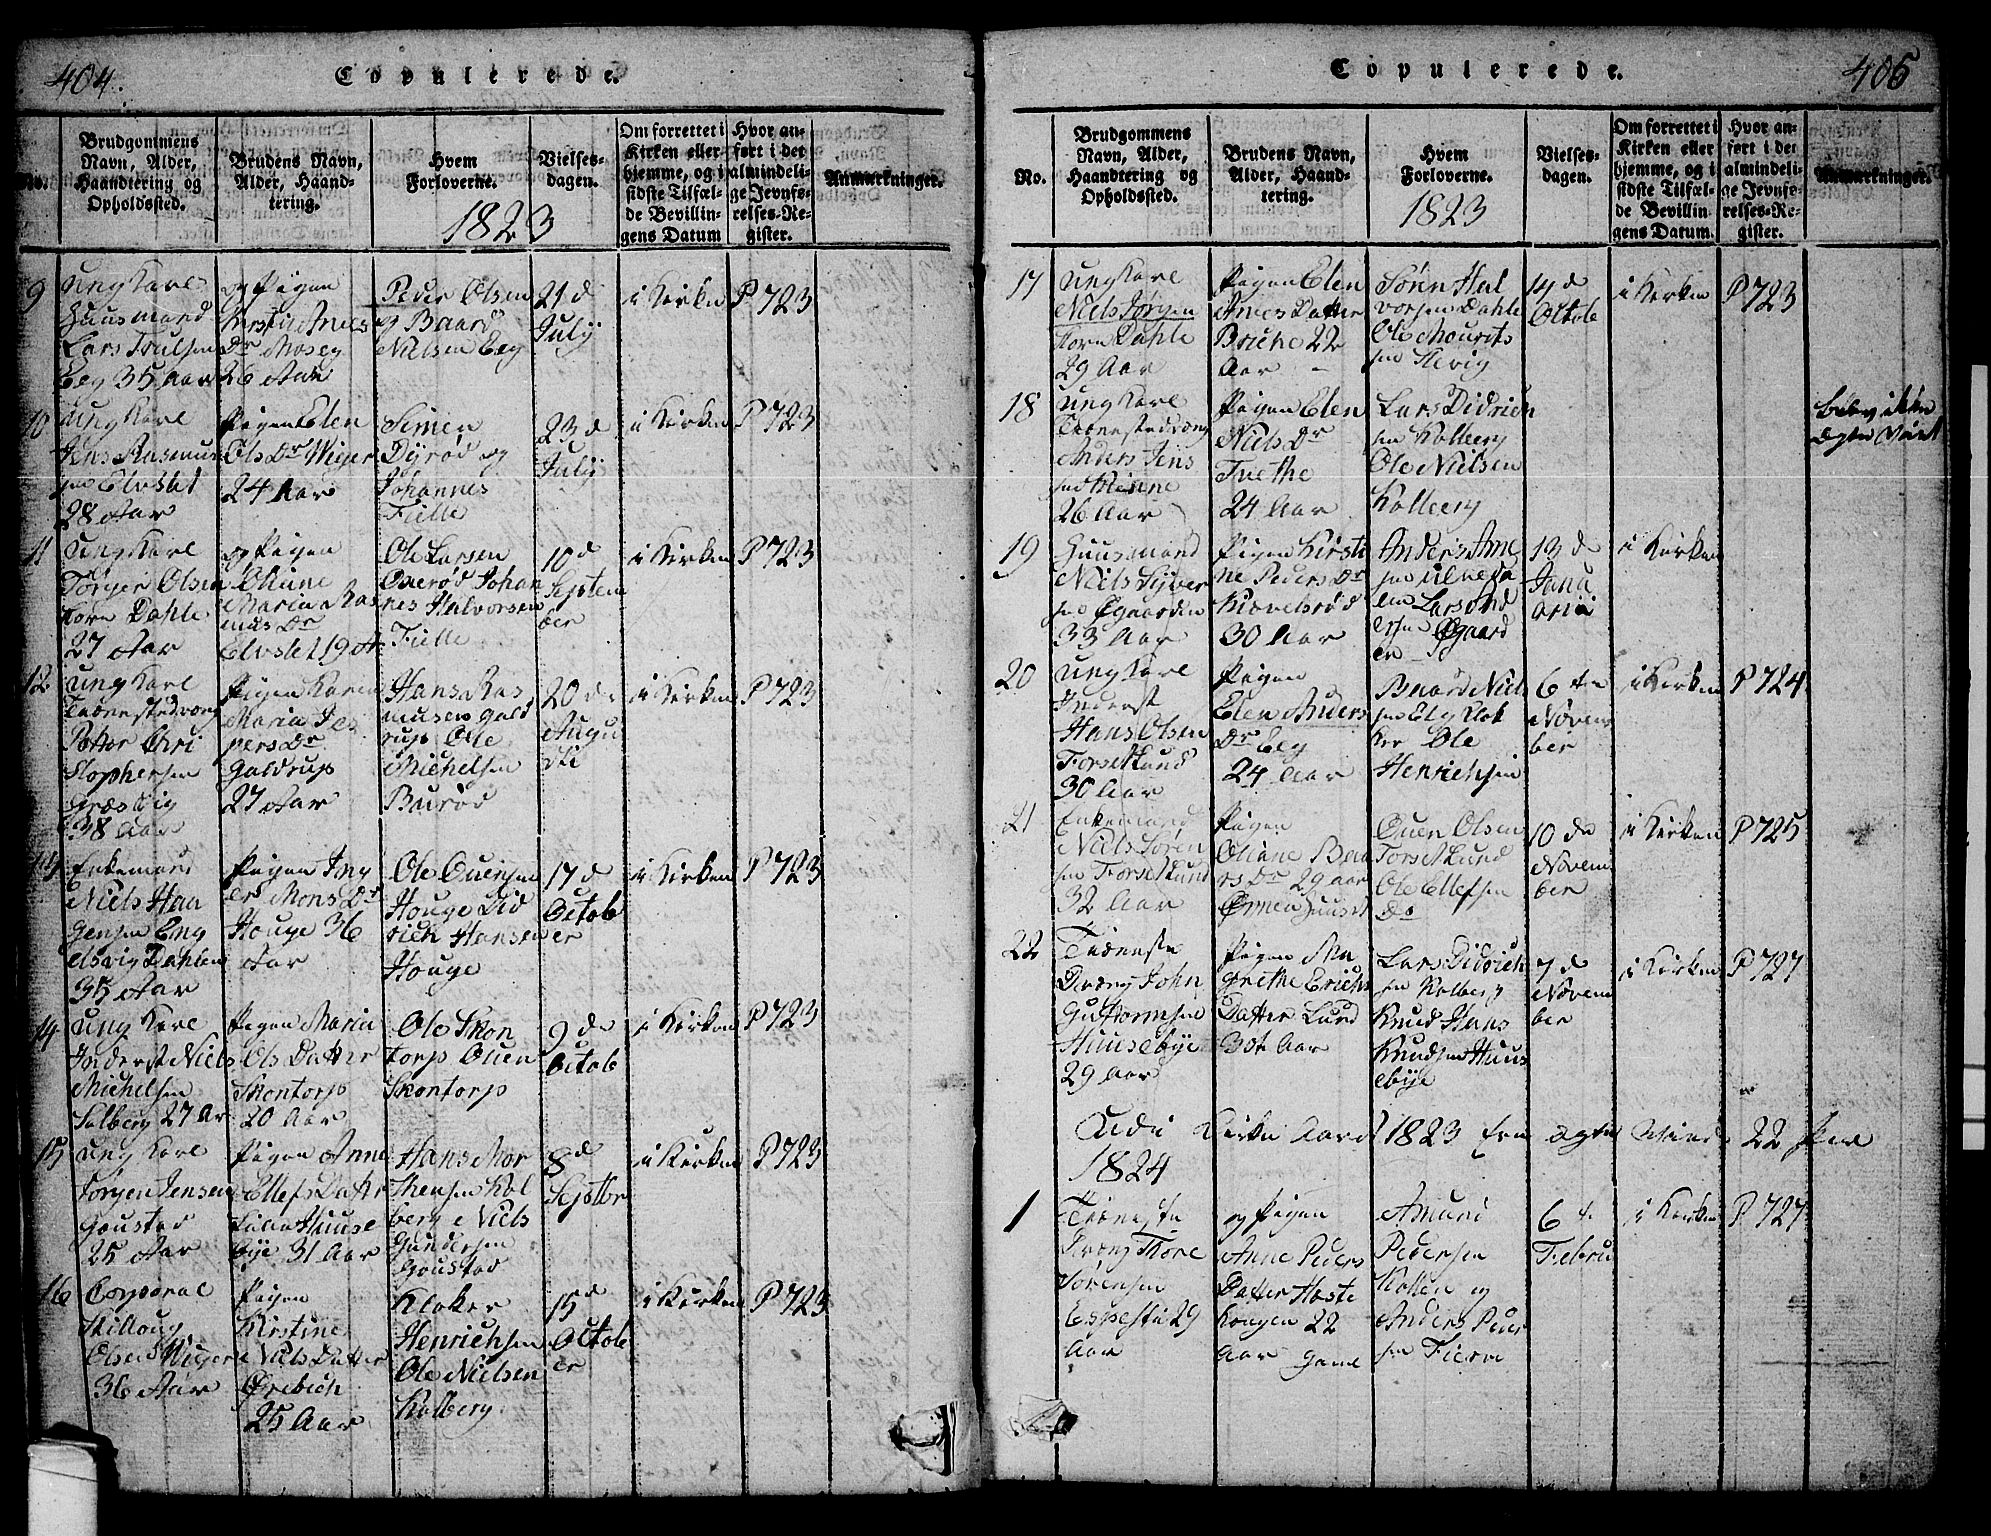 404.
Copulerede.
No.
Brudgommens
Navn, Alder,
Haandtering og
Opholdssted.
Brudens Navn,
Alder, Haand-
tering.
Hvem
Forloverne.
1823
Vielses-
dagen.
Om forrettet i
Kirken eller
hjemme, og i
sidste Tilfæl-
de Bevillin-
gens Datum
Hvor an-
ført i det
almindeli-
ge Jevnfø-
relses-Re-
gister.
Anmærkninger.
9
Ung Karl
Huusmand
Lars Trulsen
Eeg 35 Aar
og Pigen
Kirstie Arnes
Dr Moseg
26 Aar
Peder Olsen
og Baard
Nielsen Eeg
21 d
Julij
i Kirken
P 723
10
Ung Karl
Jens Rasmus
sen Elvstet
28 Aar
Pigen Elen
Ols Dr Wiger
24 Aar
Simen
Dyrød og
Johannes
Fulle
23 d
Julij
i Kirken
P 723
11
Ung Karl
Torger Olsen
Torn Dahle
27 Aar
og Pigen
Maria Ras
mus Dr
Elvstet 19 A
Ole Larsen
Johan
nes Halvorsen
Fulle
10 d
Septem
ber
i Kirken
P 723
12
Ung Karl
Tienestedreng
Petter Chri
stophersen
Græsvig
38 Aar
Pigen Karen
Maria Jes
pers Dr
Galdrup
27 Aar
Hans Ras
musen Gald
rup Ole
Michelsen
Burød
20 d
Augu
sti
i Kirken
P 723
13
Enkemand
Niels Haa
gensen Eng
elsvig Dahlen
35 Aar
Pigen Ing
er Mons Dr
Houge 36
Aar
Ole Ouensen
Houge Did
rich Hansen
Houge
17 d
Octob
er
i Kirken
P 723
14
Ung Karl
Inderst Niels
Michelsen
Solberg 27 Ar
Pigen Maria
Ols Datter
Skontorp
20 Aar
Ole Skon
torp Ouen
Skontorp
9 d
Octob
i Kirken
P 723
15
Ung Karl
Jørgen Jensen
Goustad
25 Aar
Pigen Anne
Ellefs Datter
Huuse
bye 31 Aar
Hans Mor
thensen Kol
berg e Niels
Gundersen
Goustad
8 d
Septbr
i Kirken
P 723
16
Corporal
Hilloug
Olsen Wiger
36 Aar
Pigen
Kirstine
Niels Datter
Ørebech
25 Aar
Kloker
Henrichsen
Ole Nielsen
Kolberg
15 d
Octob
er
i Kirken
P 723
405
Copulerede.
No.
Brudgommens
Navn, Alder,
Haandtering og
Opholdssted.
Brudens Navn,
Alder, Haand-
tering.
Hvem
Forloverne.
1823
Vielses-
dagen.
Om forrettet i
Kirken eller
hjemme, og i
sidste Tilfæl-
de Bevillin-
gens Datum.
Hvor an-
ført i det
almindeli-
ge Jevnfø-
relses-Re-
gister.
Anmærkninger.
17
Ung Karl
Niels Jørgen
Torn Dahle
29 Aar
Pigen Elen
Arnes Datter
Briche 22
Aar
Søren Hal
vorsen Dahle
Ole Mourits
sen Slevig
14 d
Octob
i Kirken
P 723
18
Ung Karl
Tienestedreng
Anders Jens
sen Minne
26 Aar
Pigen Elen
Niels Dr
Tvethe
24 Aar
Lars Didrich
sen Kolberg
Ole Nielsen
Kolberg
blev ikke
Egte Viet
19
Huusmand
Niels Syver
sen Øgaarden
33 Aar
Pigen Kirsti
ne Peders Dr
Kievelsrød
30 Aar
Anders Arne
sen
Lars And
ersen Øgaard
en
13 d
Janu
arii
i Kirken
20
Ung Karl
Inderst
Hans Olsen
Torsekund
30 Aar
Pigen
Elen Anders
Dr Eeg
24 Aar
Baard Niel
sen Eeg Klok
ker Ole
Henrichsen
6 te
Novem
ber
i Kirken
P 724
21
Enkemand
Niels Søren
sen Torsekund
32 Aar
Pigen
Oliane Baa
rs Dr 29 Aar
Ørmen Huuset
Ouen Olsen
Torsekund
Ole Ellefsen
Do
10 de
Novem
ber
i Kirken
P 725
22
Tieneste
Dreng John
Guttormsen
Huusebye
29 Aar
Pigen Ma
grethe Erichs
Datter Lund
30t Aar
Lars Didrich
sen Kolberg
Knud Hans
Knudsen Huus
ebye
7 d
Novem
ber
i Kirken
P 727
Kirke Aaret 1823 Ere Egte Viede 22 Par
1824
1
Tieneste
Dreng Thore
Sørensen
Espestø 29
Aar
og Pigen
Anne Peders
Datter Haste
kongen 22
Aar Gaml
Amund
Pedersen
Kollen og
Anders Peder
sen Tierve
6 te
Februa
i Kirken
P 727